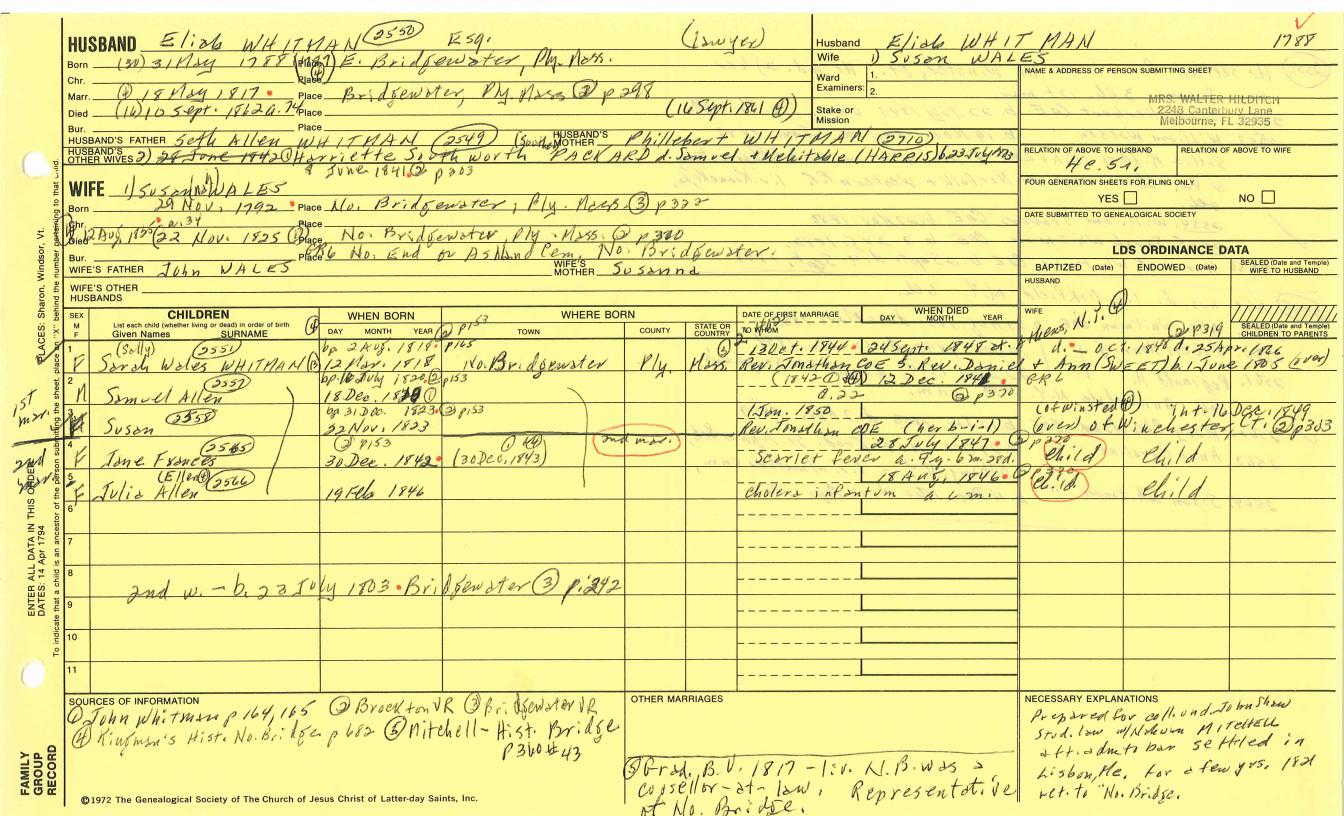 HUSBAND Eliab WHITMAN 2550 Esq. (lawyer)
Husband Eliab WHITMAN 1788
Wife 1) Susan WALES
Born 31 May 1788 Place E. Bridgewater, Ply. Mass.
Chr. Place
Marr. 4 18 May 1817 Place Bridgewater, Ply. Mass 3 p298
Died 10 Sept. 1862 a. 74 Place (16 Sept. 1861 4)
Bur. Place
Ward 1.
Examiners: 2.
Stake or Mission
NAME & ADDRESS OF PERSON SUBMITTING SHEET
MRS. WALTER HILDITCH
2248 Canterbury Lane
Melbourne, FL 32935
HUSBAND'S FATHER Seth Allen WHITMAN 2549
HUSBAND'S MOTHER Phillebert WHITMAN 2710
HUSBAND'S OTHER WIVES 2) 28 June 1842 1 Harriette Southworth PACKARD d. Samuel + Mehitable (HARRIS)
June 1841 2 p303
RELATION OF ABOVE TO HUSBAND
4c.5r.
RELATION OF ABOVE TO WIFE
WIFE 1) Susanna WALES
Born 29 Nov. 1792 Place No. Bridgewater, Ply. Mass. 3 p322
Chr. a. 34 Place
Died 22 Nov. 1825 Place No. Bridgewater, Ply. Mass. 2 p380
Bur. Place No. End of Ashland Cem. No. Bridgewater.
WIFE'S FATHER John WALES
WIFE'S MOTHER Susanna
WIFE'S OTHER HUSBANDS
FOUR GENERATION SHEETS FOR FILING ONLY
YES NO
DATE SUBMITTED TO GENEALOGICAL SOCIETY
LDS ORDINANCE DATA
BAPTIZED (Date) ENDOWED (Date) SEALED (Date and Temple) WIFE TO HUSBAND
HUSBAND
WIFE
SEALED (Date and Temple) CHILDREN TO PARENTS
SEX M F
CHILDREN
List each child (whether living or dead) in order of birth
Given Names SURNAME
WHEN BORN
DAY MONTH YEAR
WHERE BORN
TOWN COUNTY STATE OR COUNTRY
DATE OF FIRST MARRIAGE
TO WHOM
WHEN DIED
DAY MONTH YEAR
1 (Sally) 2551 bp. 2 Aug. 1818 2 p153 p165 13 Oct. 1840 24 Sept. 1848
F Sarah Wales WHITMAN 12 Mar. 1818 No. Bridgewater Ply. Mass. Rev. Jonathan COE S. Rev. Daniel + Ann (SWEET) b. 1 June 1805 (over)
d. — Oct. 1848 d. 25 Apr. 1866
Athens, N.Y. 4 2 p319
2 2557 bp. 16 July 1820 2 p153 12 Dec. 1841
M Samuel Allen 18 Dec. 1 a. 22 2 p320
3 2558 bp 31 Dec. 1823 2 p153 1 Jan. 1850
Susan 22 Nov. 1823 Rev. Jonathan COE (her b-i-l)
(of Winsted 4) int. 16 Dec. 1849
(over) of Winchester, CT. 2 p303
1st mar.
2nd mar.
4 2565 2 p153 1 4 2nd mar. 28 July 1847 2 p320
F Jane Frances 30 Dec. 1842 (30 Dec. 1843) Scarlet fever a. 4 y. 6 m. 28 d. Child Child
5 (Ellen 4) 2566 18 Aug. 1846
F Julia Allen 19 Feb 1846 cholera infantum a. 6 m. Child Child
6
7
8
2nd w. – b. 22 July 1803 Bridgewater 3 p. 242
9
10
11
SOURCES OF INFORMATION
1 John Whitman p 164, 165 2 Brockton VR 3 Bridgewater VR
4 Kingman's Hist. No. Bridge. p 682 5 Mitchell – Hist. Bridge p360 #43
OTHER MARRIAGES
5 Grad. B.U. 1817 – liv. N.B. was a
counsellor-at-law. Representative
of No. Bridge.
NECESSARY EXPLANATIONS
Prepared for coll. und. John Shaw
Stud. law w/Nahum MITCHELL
aft. adm. to bar settled in
Lisbon, Me. for a few yrs. 1821
ret. to No. Bridge.
PLACES: Sharon, Windsor, Vt.
ENTER ALL DATA IN THIS ORDER:
DATES: 14 Apr 1794
To indicate that a child is an ancestor of the person submitting the sheet, place an "X" behind the number pertaining to that child.
FAMILY GROUP RECORD
©1972 The Genealogical Society of The Church of Jesus Christ of Latter-day Saints, Inc.